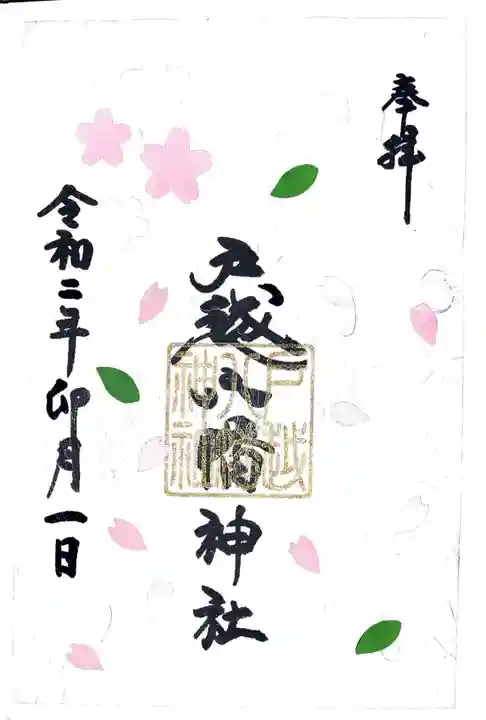 奉拝
戸越八幡神社
戸越
八幡
神社
令和二年卯月一日